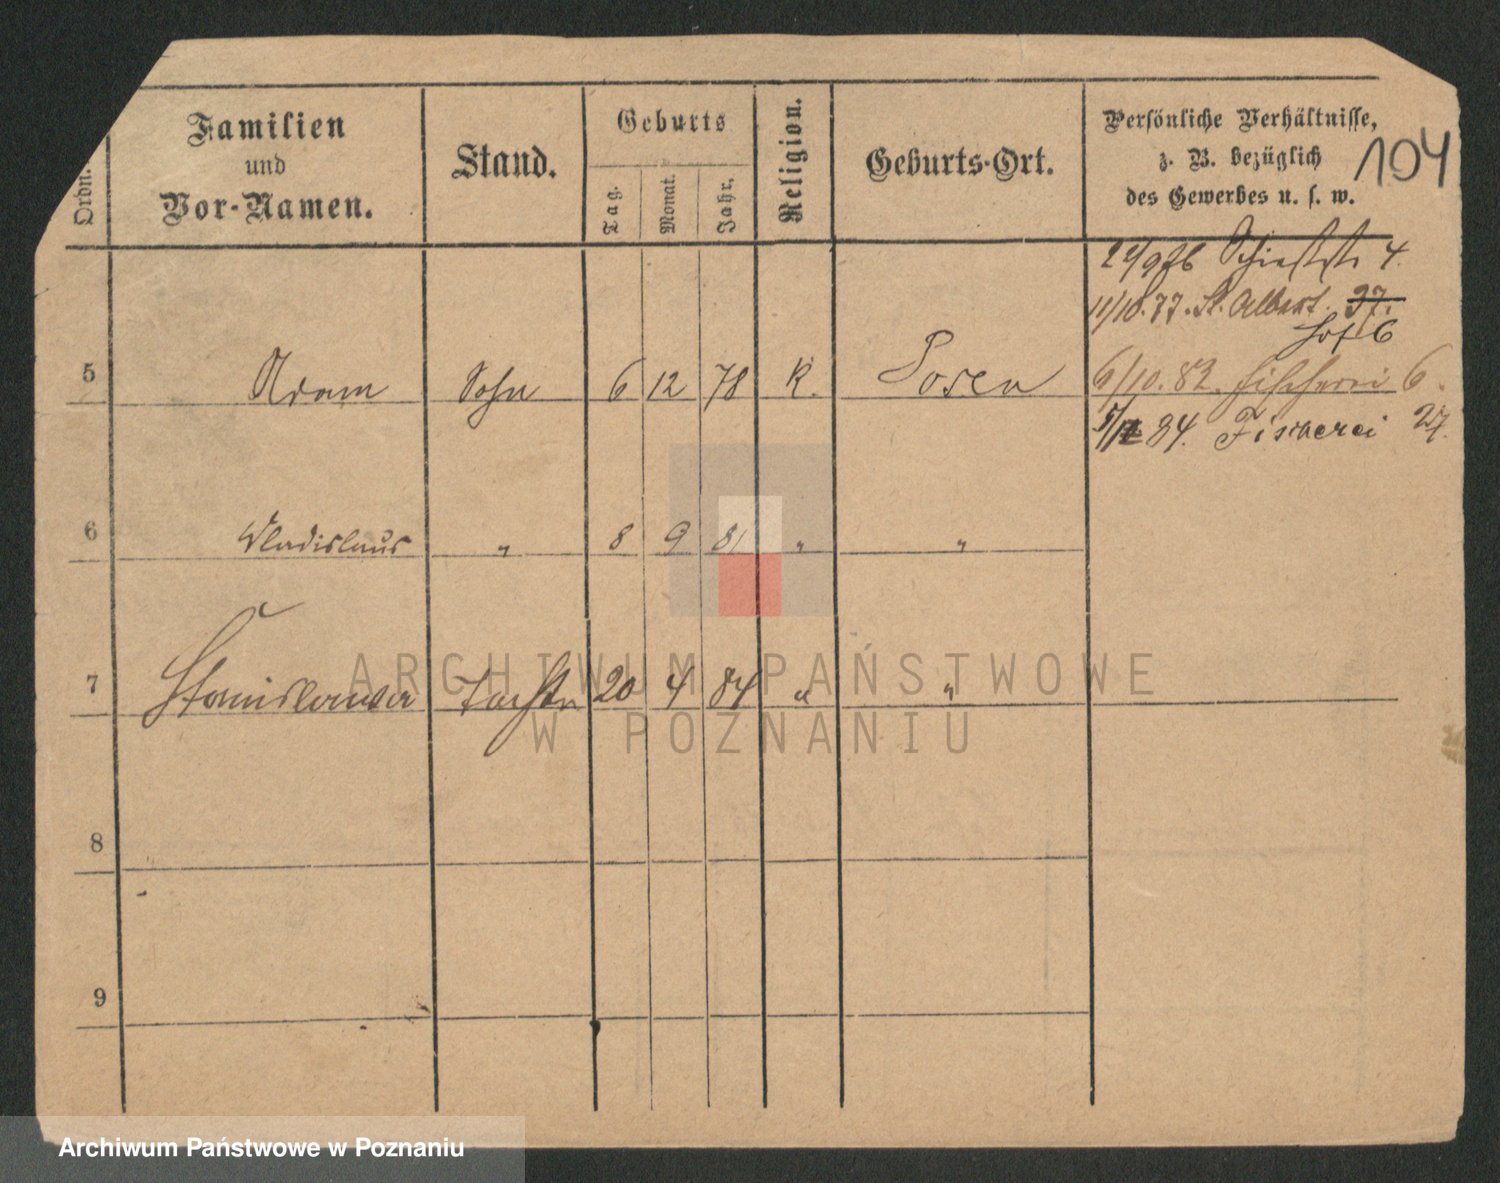 Ordn.
Familien
und
Vor-Namen.
Stand.
Geburts
Tag.
Monat.
Jahr.
Religion.
Geburts-Ort.
Persönliche Verhältnisse,
z. B. bezüglich
des Gewerbes u. s. w.
104
4.
11/10.77. St. Albert. 37.
Hof 6
5 Adam Sohn 6 12 78 K. Posen
6/10.82. Fischerei 6.
84. Fischerei 27.
6 Wladislaus " 8 9 81 " "
7 Stanislawa Tochter 20 4 84 " "
8
9
ARCHIWUM PAŃSTWOWE
W POZNANIU
Archiwum Państwowe w Poznaniu